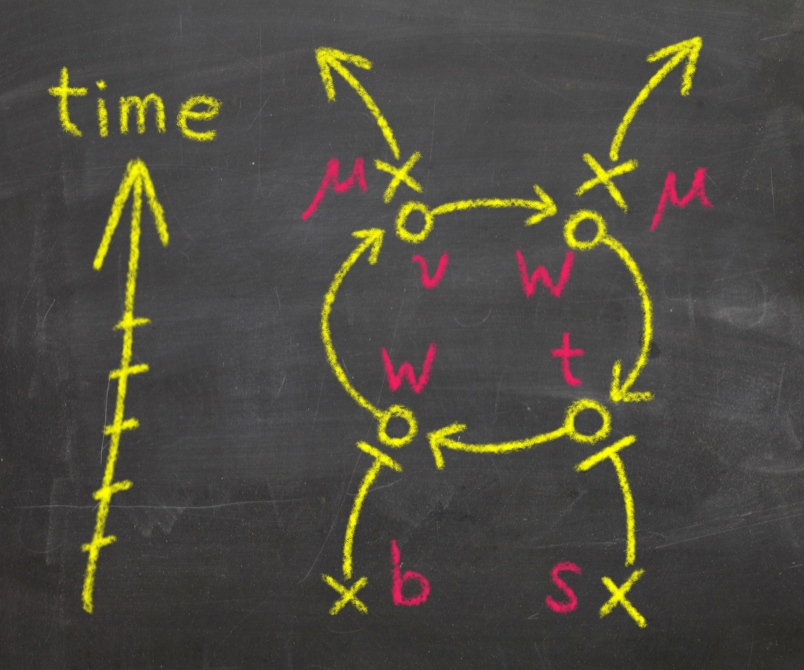 time
μ μ
ν W
W t
b s